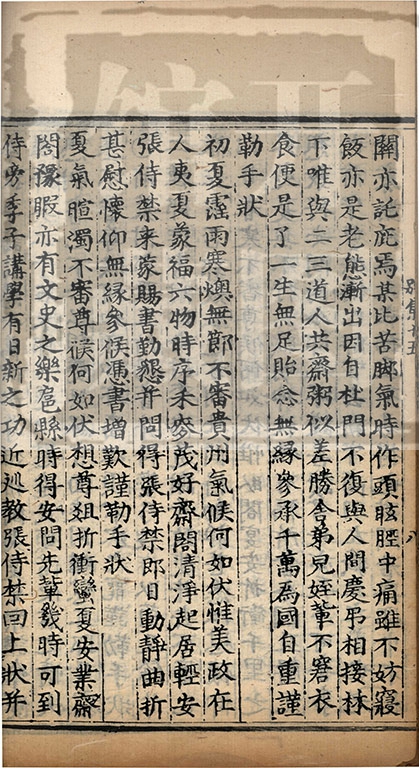 關亦託庇焉某比苦脚氣時作頭眩脛中痛雖不妨寢
飯亦是老態漸出因自杜門不復與人間慶吊相接林
下唯與二三道人共齋粥似差勝舍弟兒姪輩不窘衣
食便是了一生無足貽念無緣參承千萬為國自重謹
勒手狀
初夏霪雨寒燠無節不審貴州氣候何如伏惟美政在
人夷夏蒙福六物時序禾麥茂好齋閤清淨起居輕安
張侍禁来蒙賜書勤懇并問得張侍禁即日動靜曲折
甚慰懷仰無緣參候憑書增歎謹勒手狀
夏氣暄濁不審尊候何如伏想尊俎折衝蠻夏安業齋
閤豫暇亦有文史之樂嵒縣時得安問先輩幾時可到
侍旁季子講學有日新之功近巡教張侍禁回上狀并
八